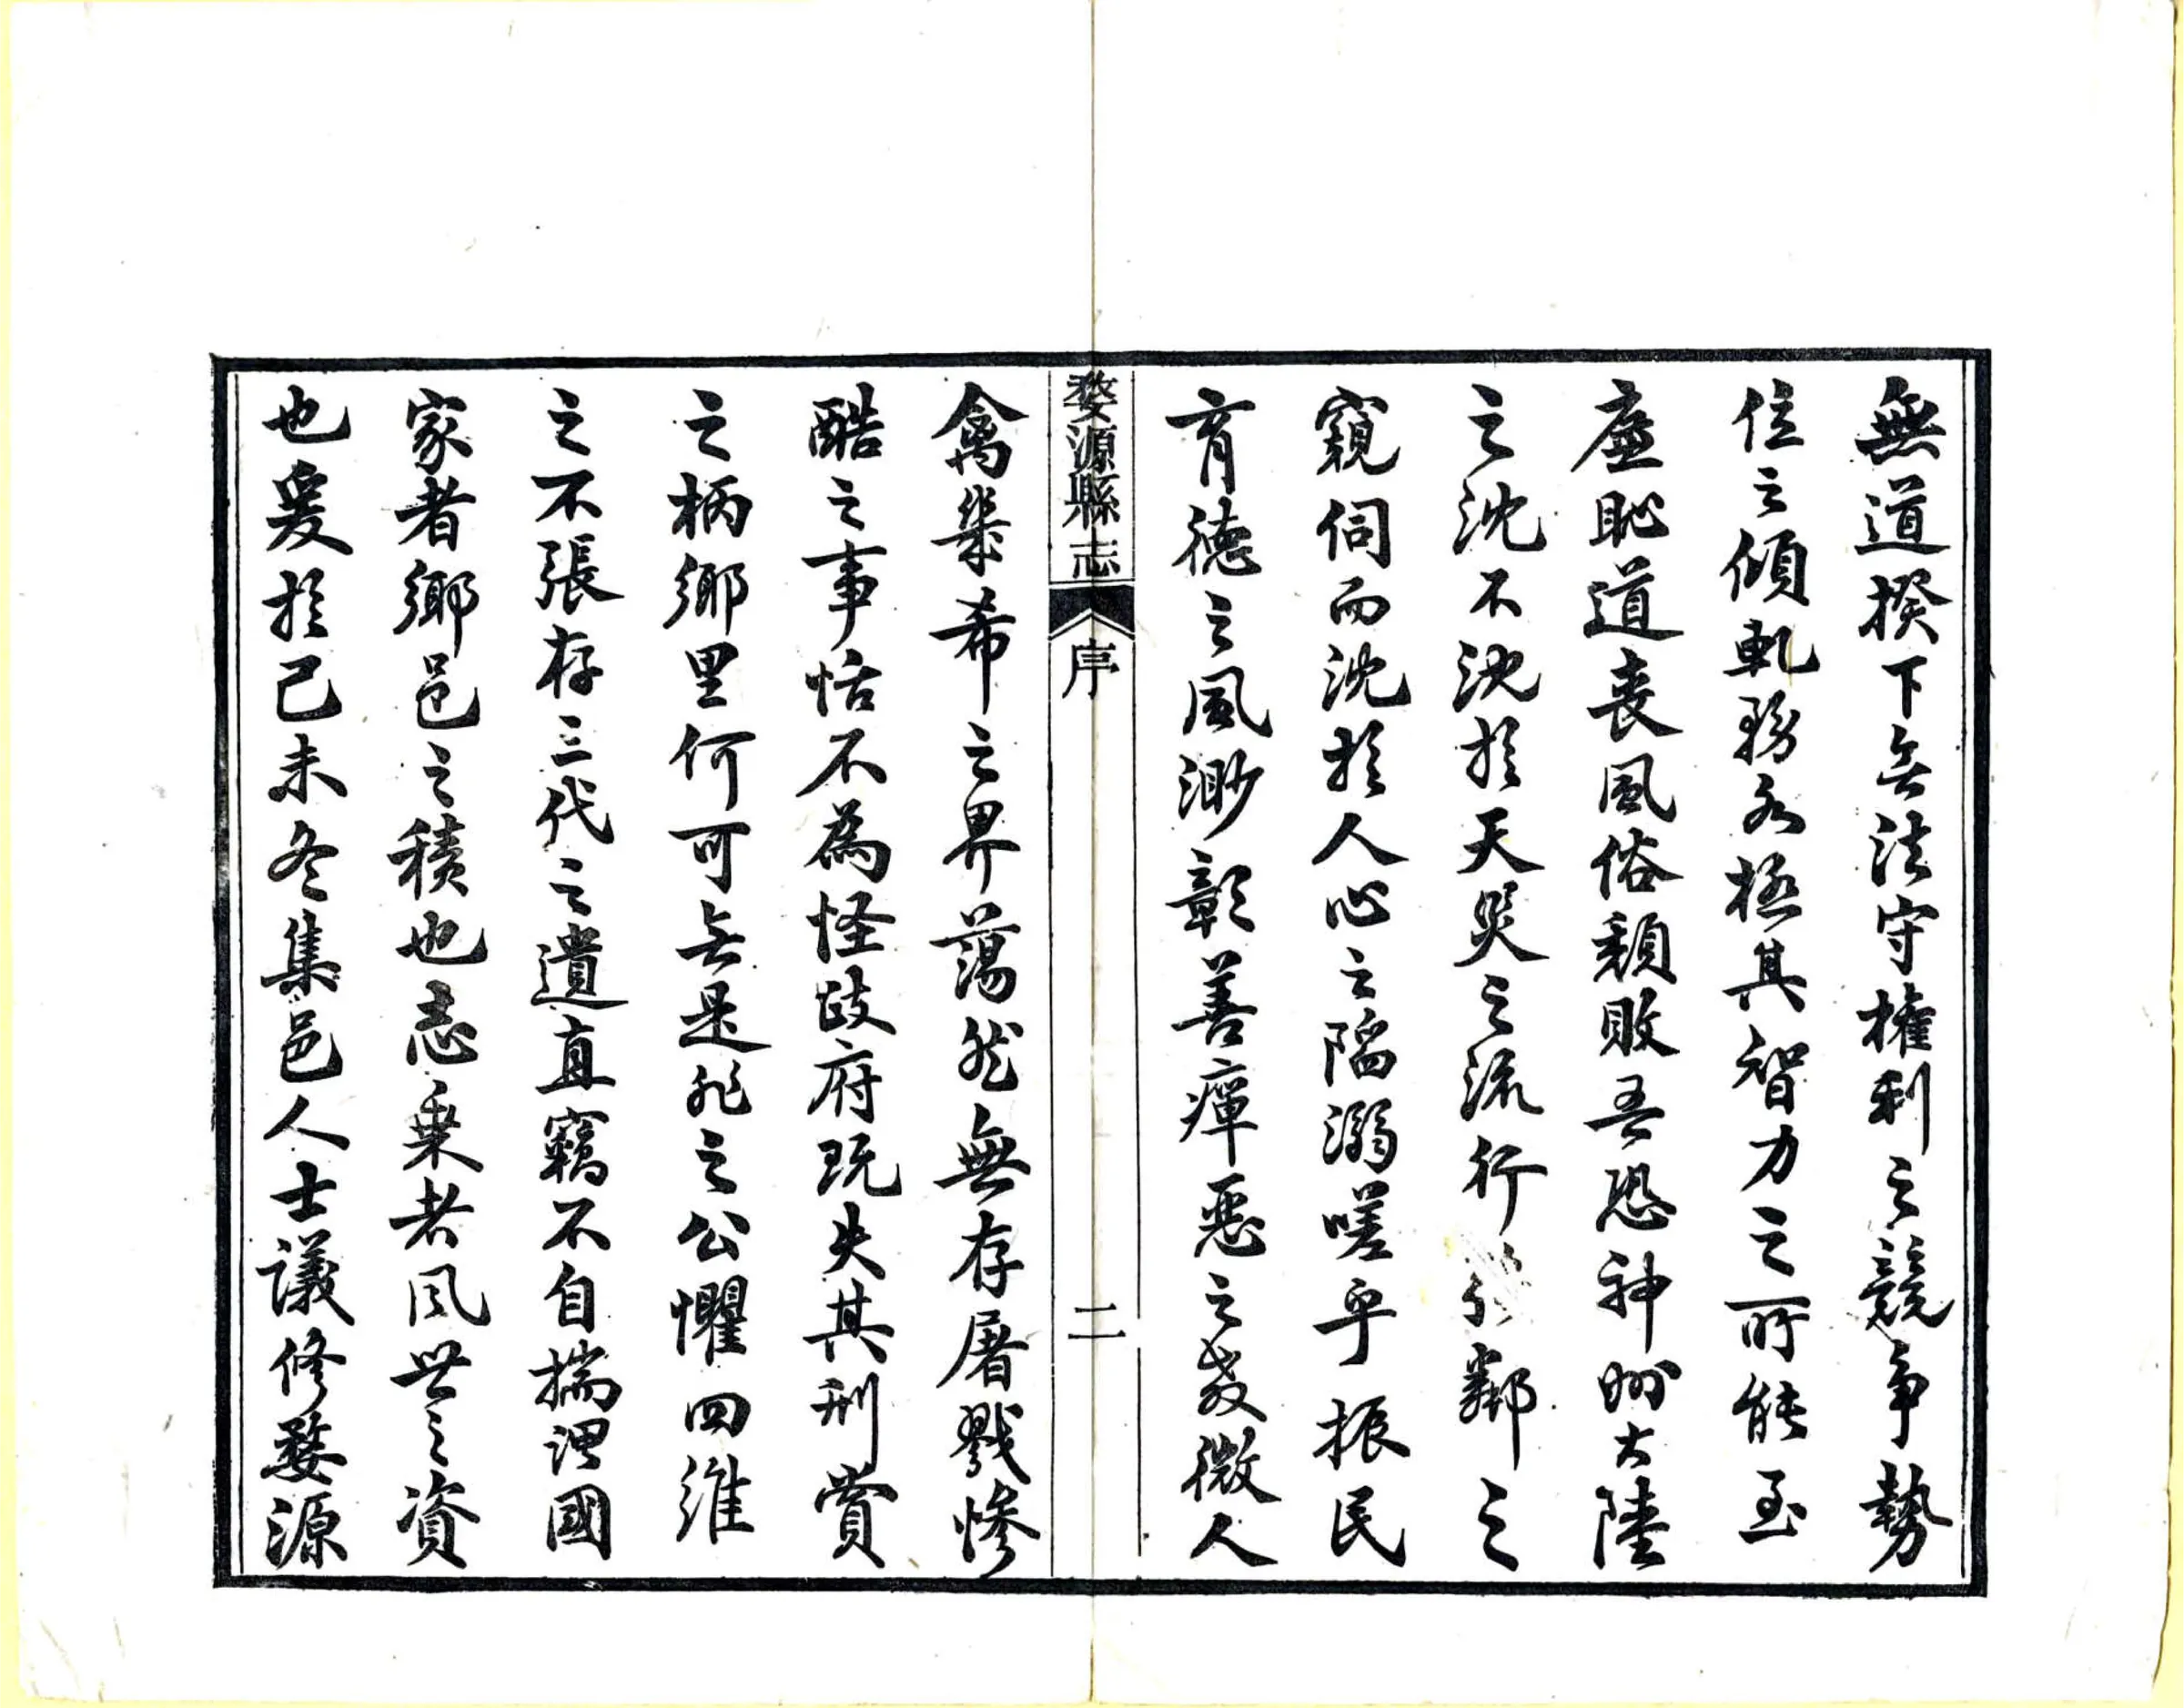 無道揆下無法守權利之競爭勢
位之傾軋務求極其智力之所能至
廉恥道喪風俗頹敗吾恐神州大陸
之沈不沈於天災之流行鄰之
窺伺而沈於人心之陷溺嗟乎振民
育德之風渺彰善癉惡之教微人
婺源縣志 序 二
禽幾希之界蕩然無存屠戮慘
酷之事恬不為怪政府既失其刑賞
之柄鄉里何可無是非之公懼四維
之不張存三代之遺直竊不自揣謂國
家者鄉邑之積也志乘者風世之資
也爰於己未冬集邑人士議修婺源